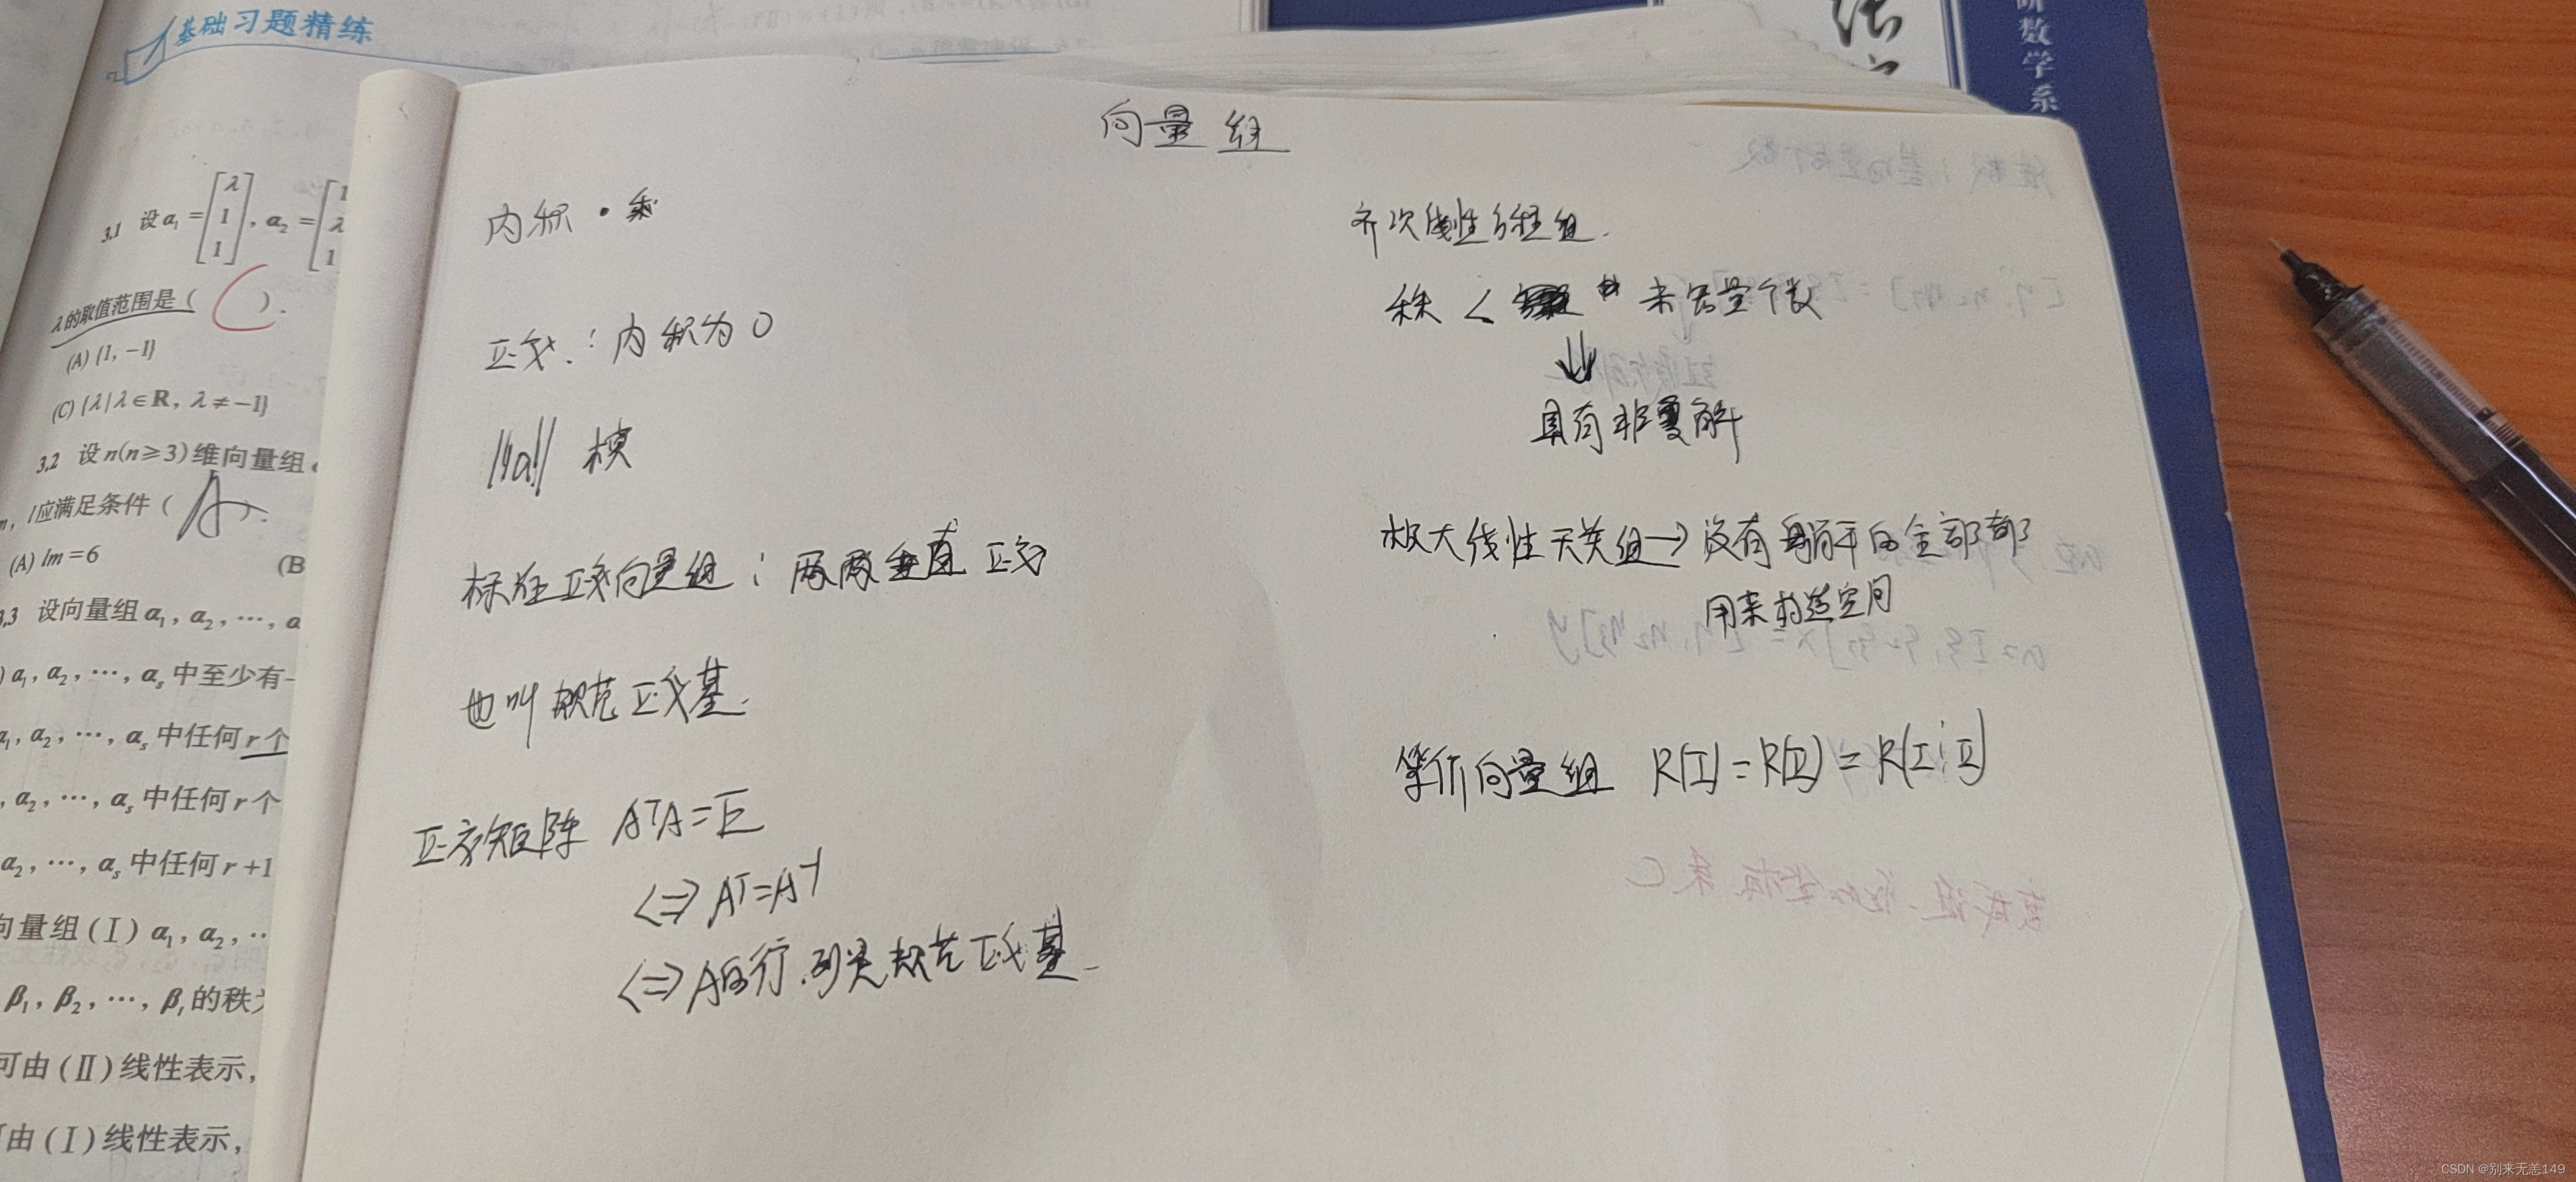 基础习题精练
3.1 设 α₁ = [λ 1 1], α₂ = [1 λ 1
λ的取值范围是( C ).
(A) {1, −1}
(C) {λ|λ∈R, λ≠−1}
3.2 设 n(n≥3)维向量组
m, l应满足条件( A ).
(A) lm=6
(B
3.3 设向量组 α₁, α₂, ⋯, α
) α₁, α₂, ⋯, αₛ 中至少有一
α₁, α₂, ⋯, αₛ 中任何 r 个
, α₂, ⋯, αₛ 中任何 r 个
α₂, ⋯, αₛ 中任何 r+1
向量组(Ⅰ) α₁, α₂, ⋯
β₁, β₂, ⋯, βₜ 的秩为
可由(Ⅱ)线性表示,
可由(Ⅰ)线性表示,
向量组
内积 · 乘
正交:内积为0
||a|| 模
标准正交向量组:两两垂直 正交
也叫规范正交基.
正交矩阵 AᵀA=E
⟺ Aᵀ=A⁻¹
⟺ A的行.列是规范正交基.
齐次线性方程组.
秩 < 未知量个数
⇓
具有非零解
极大线性无关组→没有躺平的全部部
用来构造空间
等价向量组 R(I)=R(II)=R(I¦II)
阶数学系
CSDN @别来无恙149